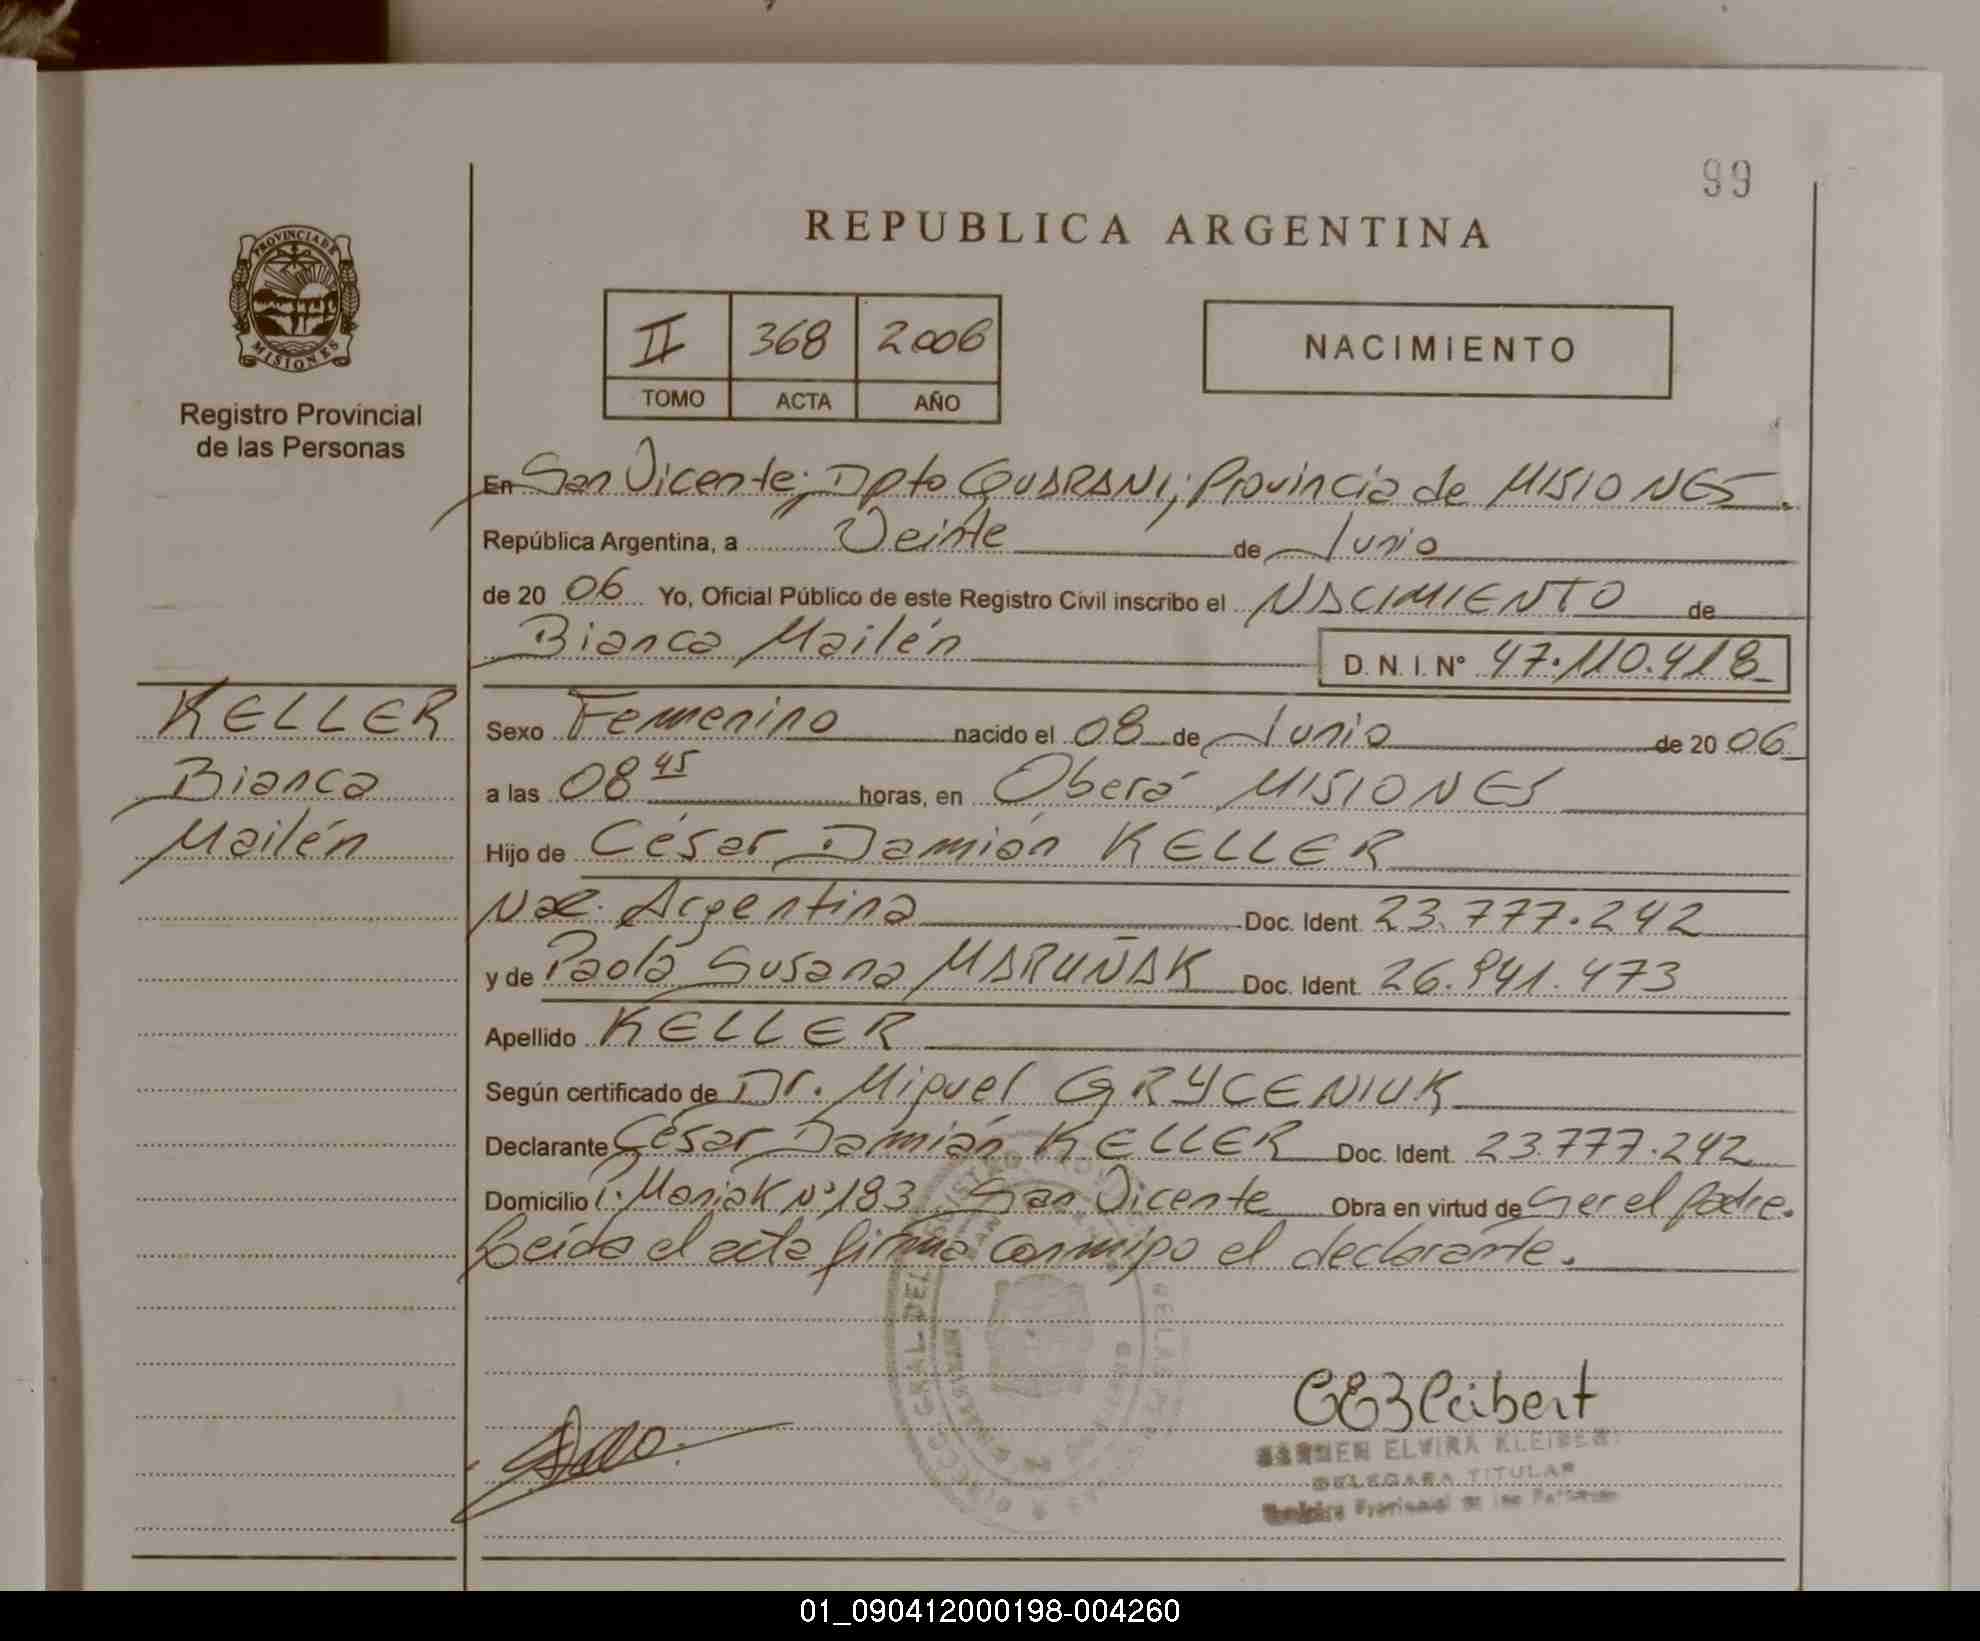 99
REPUBLICA ARGENTINA
PROVINCIA DE
MISIONES
Registro Provincial
de las Personas
II 368 2006
TOMO ACTA AÑO
NACIMIENTO
En San Vicente; Dpto GUARANI; Provincia de MISIONES.
República Argentina, a Veinte de Junio
de 20 06 Yo, Oficial Público de este Registro Civil inscribo el NACIMIENTO de
Bianca Mailén D. N. I. N° 47.110.418
KELLER
Bianca
Mailén
Sexo Femenino nacido el 08 de Junio de 20 06
a las 08 45 horas, en Oberá MISIONES
Hijo de César Damián KELLER
Nac. Argentina Doc. Ident. 23.777.242
y de Paola Susana MARUÑAK Doc. Ident. 26.941.473
Apellido KELLER
Según certificado de Dr. Miguel GRYCENIUK
Declarante César Damián KELLER Doc. Ident. 23.777.242
Domicilio P. Maniak N° 183 San Vicente Obra en virtud de Ser el padre.
Leída el acta firma conmigo el declarante.
CEKleibert
CARMEN ELVIRA KLEIBERT
DELEGADA TITULAR
Registro Provincial de las Personas
01_090412000198-004260